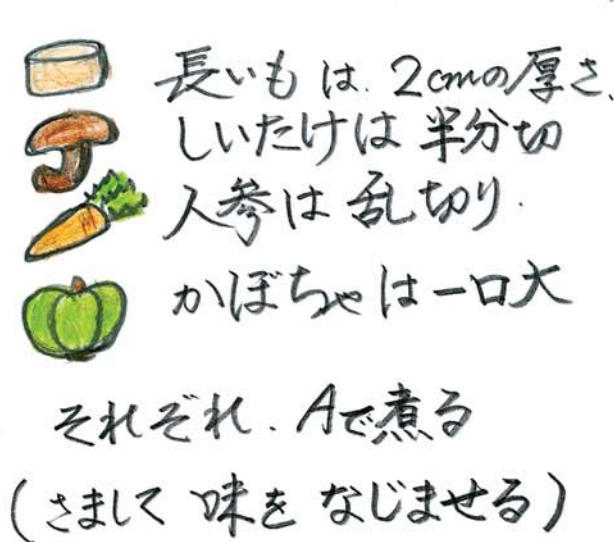 長いもは、2cmの厚さ、
しいたけは半分切
人参は乱切り.
かぼちゃは一口大
それぞれ、Aで煮る
(さまして味をなじませる)